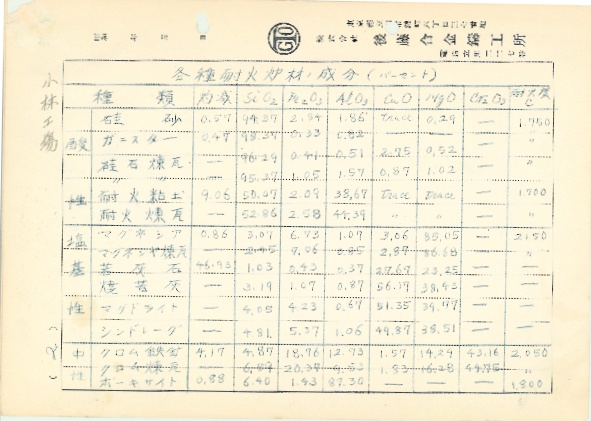 株式会社 後藤合金鋳工所
小林工場
各種耐火炉材ノ成分 (パーセント)
種類 灼減 SiO2 Fe2O3 Al2O3 CaO MgO Cr2O3 耐火度
硅砂 0.57 94.37 2.54 1.86 trace 0.29 — 1,750
酸 ガニスター 0.47 0.33 —
硅石煉瓦 — 96.29 0.49 0.51 2.75 0.52 — 〃
〃 — 95.37 1.05 1.57 0.87 1.02 — 〃
性 耐火粘土 9.06 50.07 2.09 38.67 trace trace — 1,700
耐火煉瓦 — 52.86 2.58 44.39 〃 〃 — 〃
塩 マグネシア 0.86 3.07 6.73 1.09 3.06 85.05 — 2,150
マグネシヤ煉瓦 — 7.06 2.87 86.68 — 〃
基 苦灰石 46.93 1.03 0.43 0.37 27.67 23.25 — 〃
焼苦灰 — 3.19 1.07 0.87 56.17 38.43 — 〃
性 マグドライト — 4.05 4.23 0.67 51.35 39.77 — 〃
シンドレーグ — 4.81 5.37 1.06 49.87 38.51 — 〃
中 クロム鉄
4.17 4.87 18.76 12.73 1.57 14.29 43.16 2,050
クロム煉瓦 — 20.37 1.83 16.28 44.75 〃
性 ボーキサイト 0.88 6.40 1.43 87.30 — — — 1,800
(2)